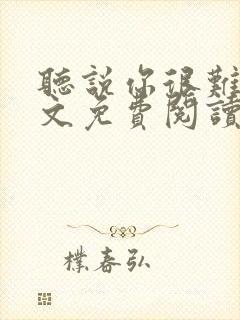 聽說你很難
文免費閱讀
樸春弘